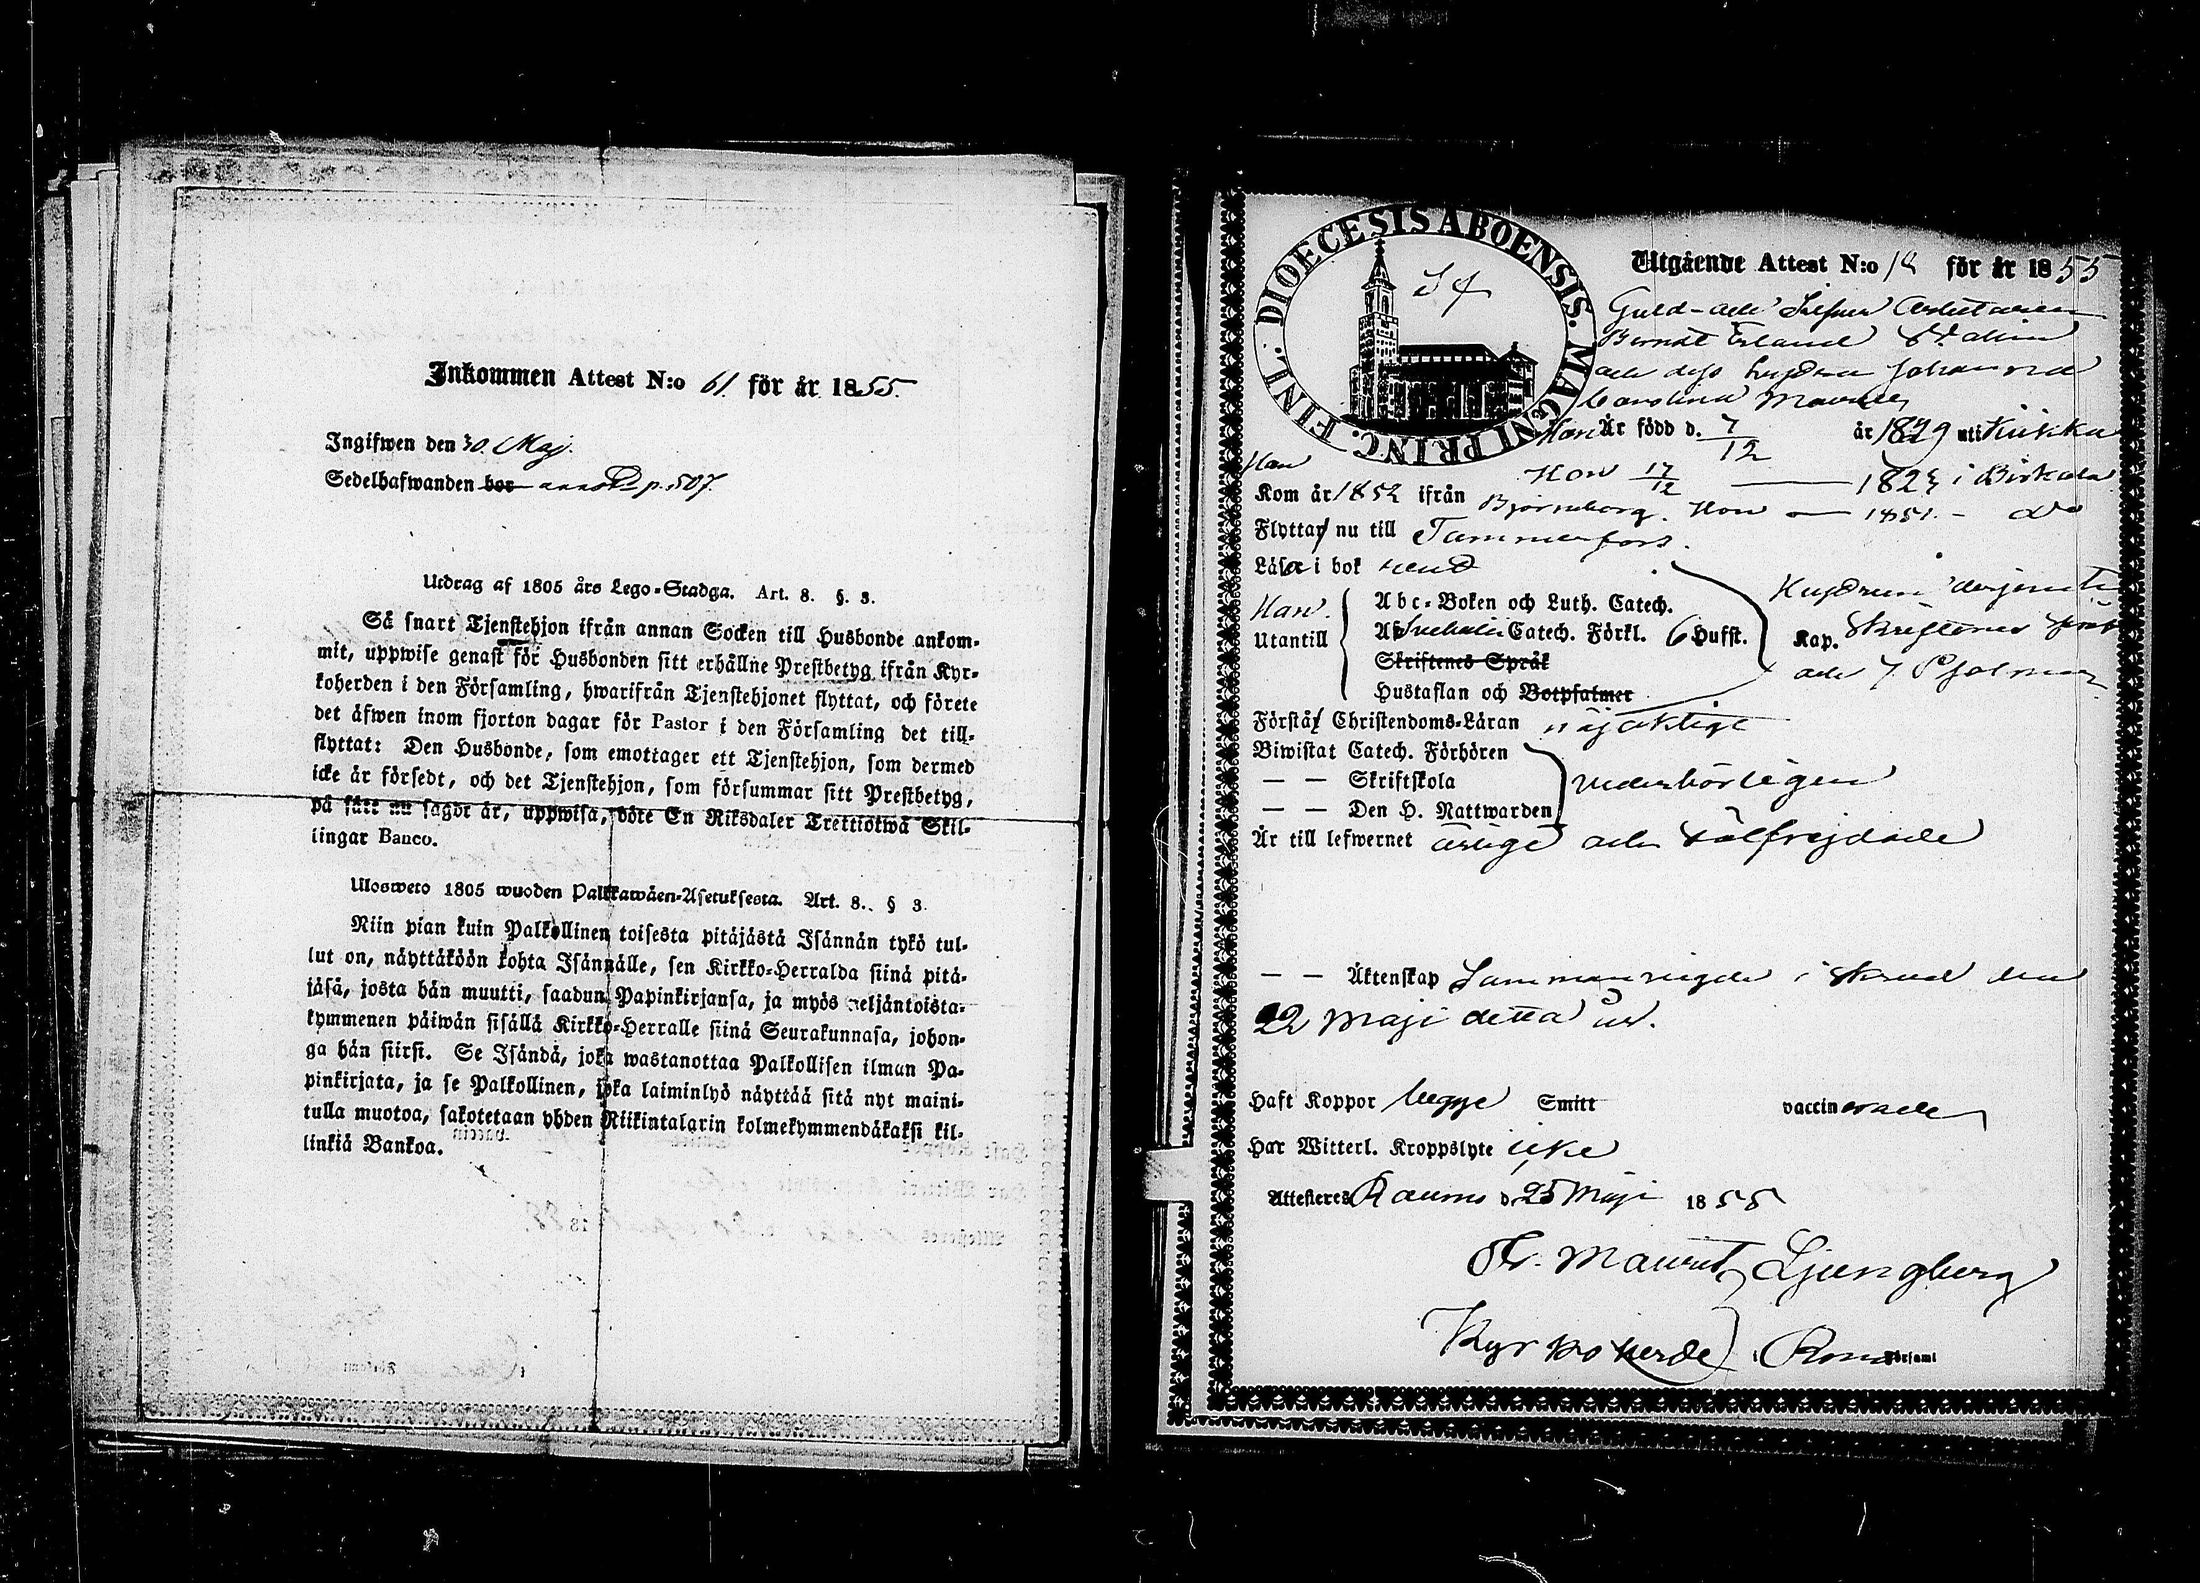 Inkommen Attest N:o 61. för år 1855.
Ingifwen den 30. Maj.
Sedelhafwanden bor annot. p. 507.
Utdrag af 1805 års Lego-Stadga. Art. 8. §. 3.
Så snart Tjenstehjon ifrån annan Socken till Husbonde ankom-
mit, uppwise genast för Husbonden sitt erhållne Prestbetyg ifrån Kyr-
koherden i den Församling, hwarifrån Tjenstehjonet flyttat, och förete
det äfwen inom fjorton dagar för Pastor i den Församling det till-
flyttat: Den Husbonde, som emottager ett Tjenstehjon, som dermed
icke är försedt, och det Tjenstehjon, som försummar sitt Prestbetyg,
på sätt nu sagdt är, uppwisa, böte En Riksdaler Trettiotwå Skil-
lingar Banco.
Ulosweto 1805 wuoden Palkkawäen-Asetuksesta. Art. 8. § 3.
Niin pian kuin Palkollinen toisesta pitäjästä Isännän tykö tul-
lut on, näyttäköön kohta Isännälle, sen Kirkko-Herralda siinä pitä-
jäsä, josta hän muutti, saadun Papinkirjansa, ja myös neljäntoista-
kymmenen päiwän sisällä Kirkko-Herralle siinä Seurakunnasa, johon-
ga hän siirsi. Se Isändä, joka wastanottaa Palkollisen ilman Pa-
pinkirjata, ja se Palkollinen, joka laiminlyö näyttää sitä nyt maini-
tulla muotoa, sakotetaan yhden Riikintalarin kolmekymmendäkaksi kil-
linkiä Bankoa.
DIOECESIS ABOENSIS. MAGNI PRINC. FINL.
54
Utgående Attest N:o 18 för år 1855
Guld- och Silfver Arbetaren
Berndt Erland Stalin
och dess hustru Johanna
Carolina
Han Är född d. 7/12 år 1829 uti Kiikka
Han Hon 17/12 — 1823 i Birkala
Kom år 1852 ifrån Björneborg. Hon — 1851. — do
Flyttar nu till Tammerfors.
Läsa i bok rend
Han. Abc-Boken och Luth. Catech. Hustrun derjemte
Utantill Svebelii Catech. Förkl. 6 Hufst. Kap. Skriftenes språk
Skriftenes Språk och 7 Psalmer
Hustaflan och Botpsalmer
Förstå Christendoms-Läran nöjaktigt
Biwistat Catech. Förhören
— — Skriftskola vederbörligen
— — Den H. Nattwarden
Är till lefwernet ärlige och välfrejdade
— — Äktenskap Sammanvigde i Åbo den
22 Maji detta år.
Haft Koppor begge Smitt vaccinerade
Har Witterl. Kroppslyte icke
Attesteres Raumo d. 25 Maji 1855
Fr. Maurit. Ljungberg
Kyrkoherde i Raumo Församl